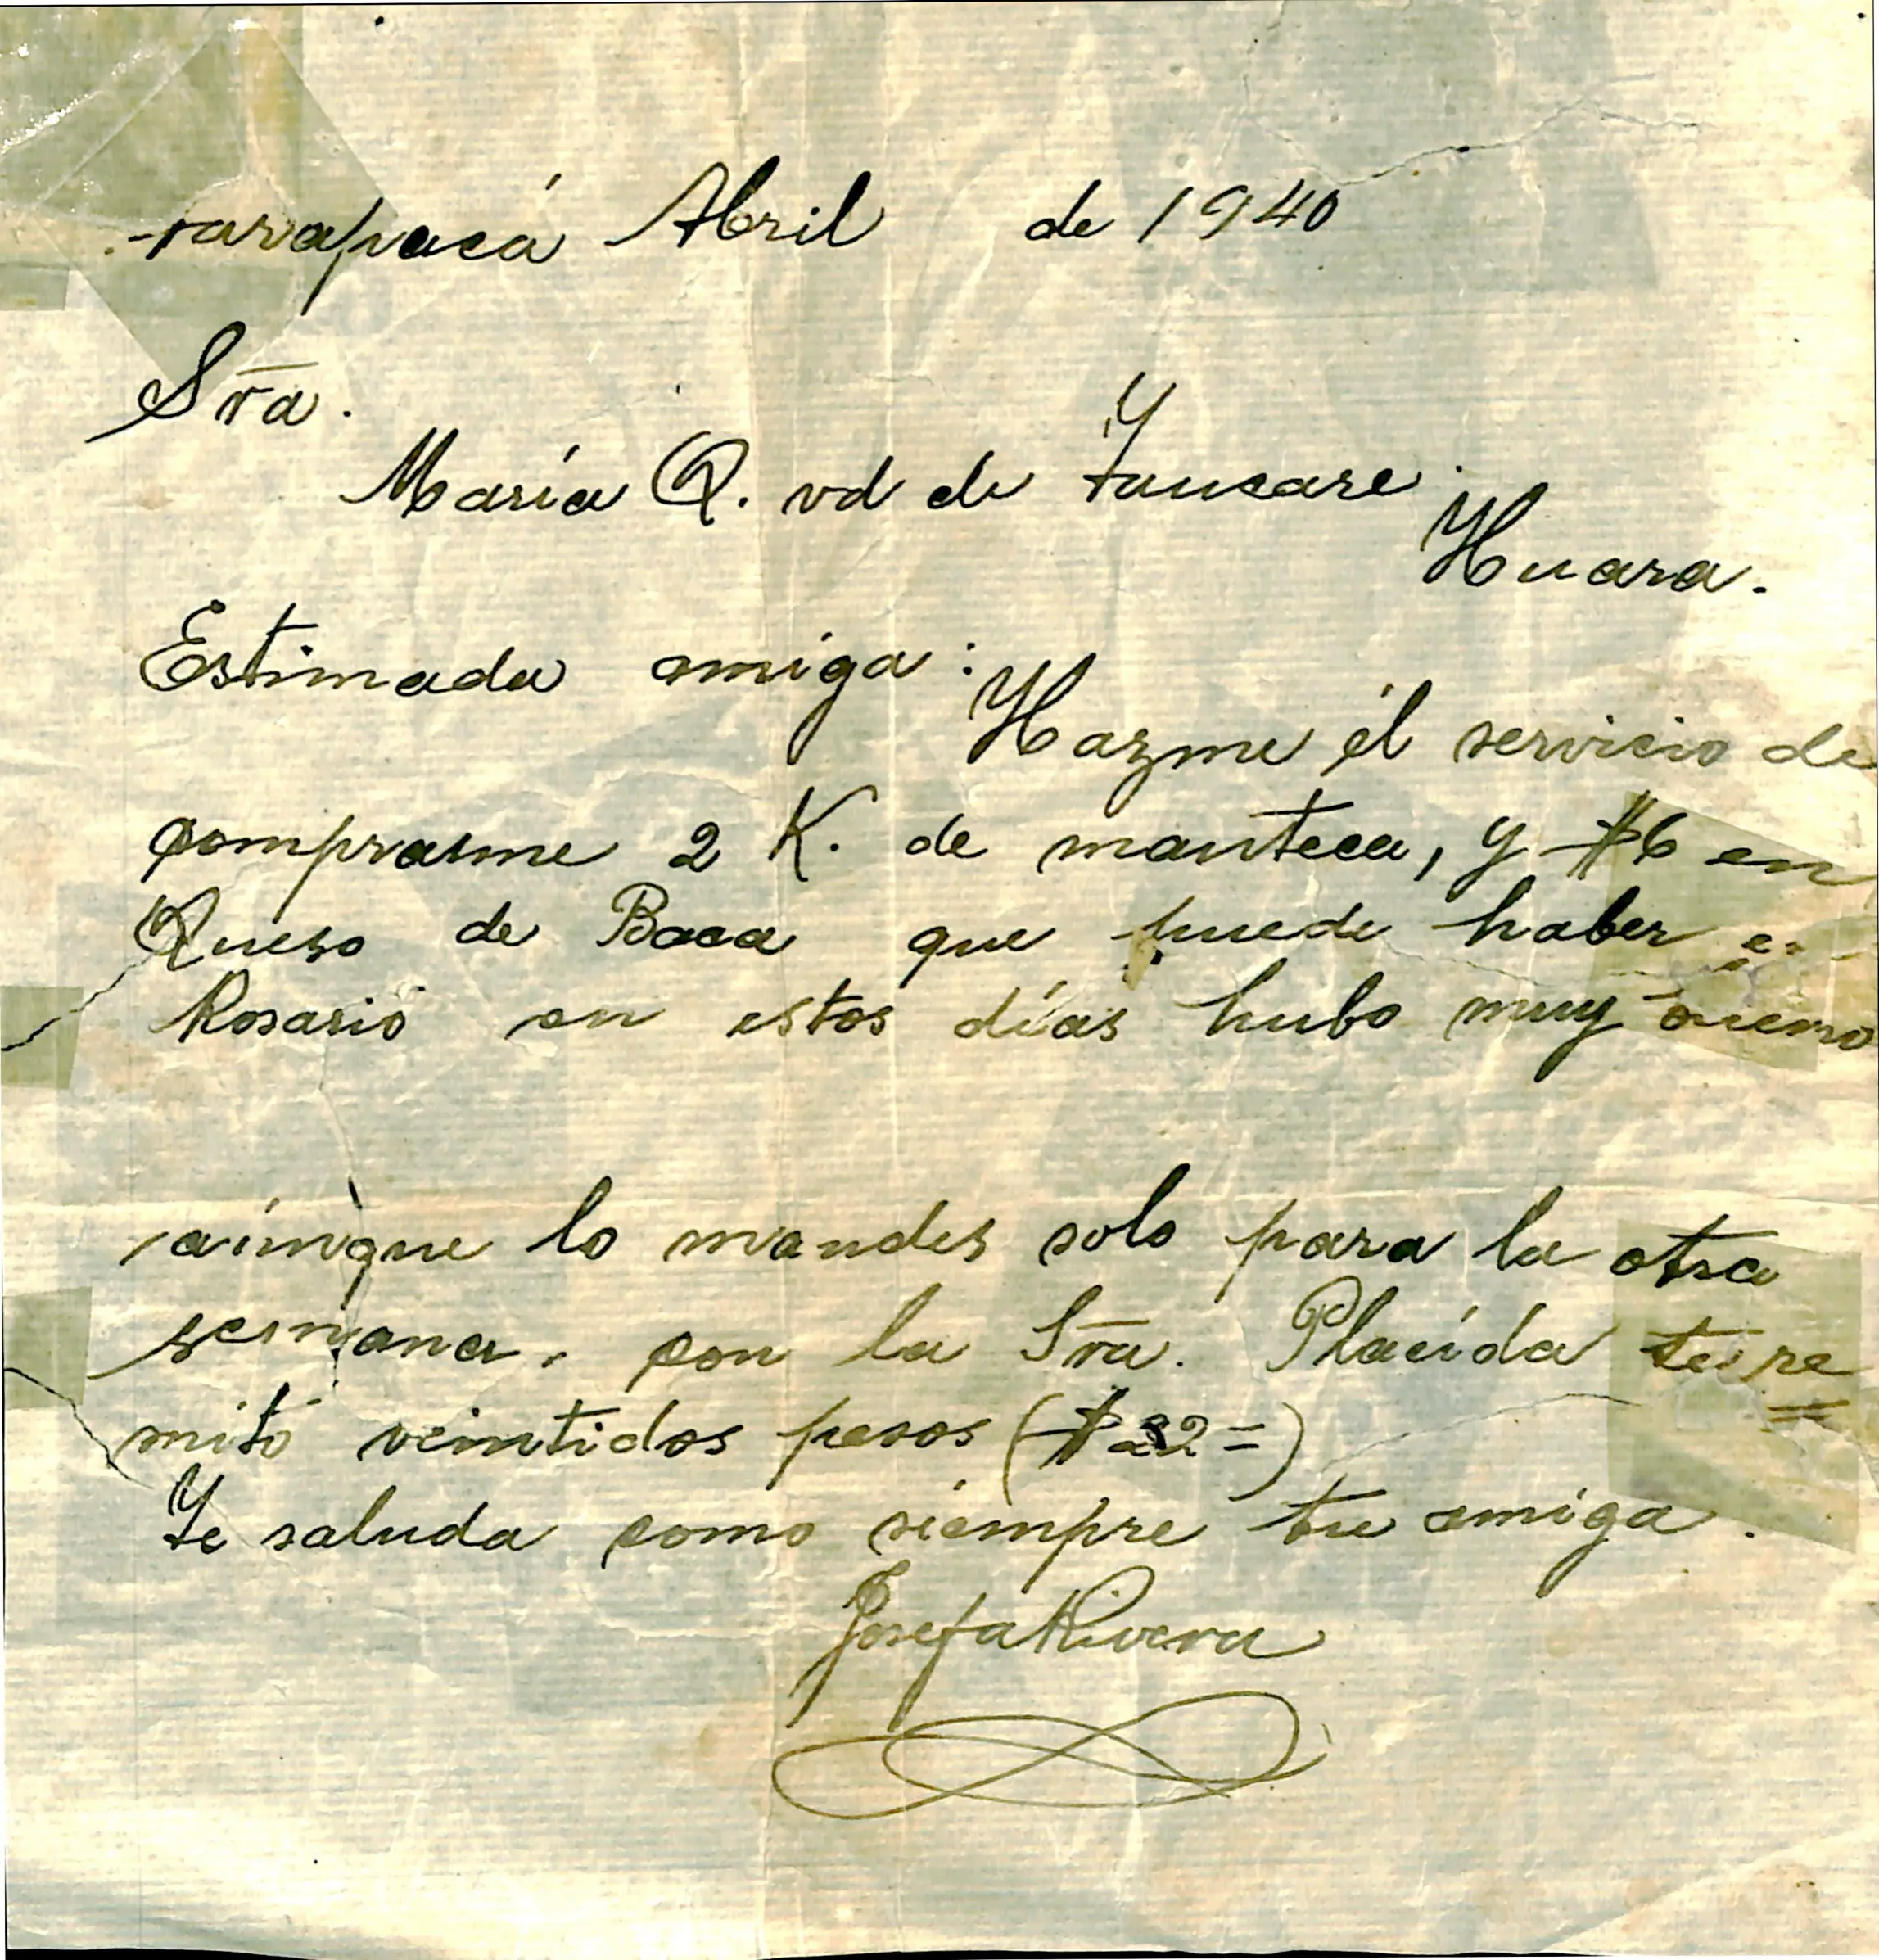 Tarapacá Abril de 1940
Sra.
María Q. vd de Taucare.
Huara.
Estimada amiga:
Hazme él servicio de
comprarme 2 K. de manteca, y $6 en
Queso de Baca que puede haber
Rosario en estos días hubo muy
aúnque lo mandes solo para la otra
semana, con la Sra. Placída te re
mitó veintidos pesos ($22=)
Te saluda como siempre tu amiga.
Josefa Rivera